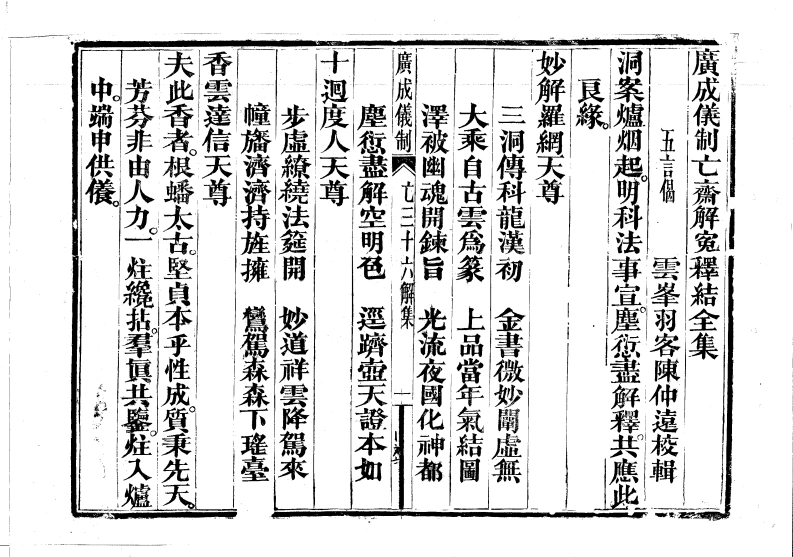 廣成儀制亡齋解冤釋結全集
五言偈　雲峯羽客陳仲遠校輯
洞案爐烟起。明科法事宣。塵愆盡解釋。共應此
良緣。
妙解羅網天尊
三洞傳科龍漢初　金書微妙闡虛無
大乘自古雲爲篆　上品當年氣結圖
澤被幽魂開鍊旨　光流夜國化神都
廣成儀制　亡三十六解集　一
塵愆盡解空明色　逕躋壺天證本如
十迴度人天尊
步虛繚繞法筵開　妙道祥雲降駕來
幢旛濟濟持旌擁　鸞駕森森下瑤臺
香雲達信天尊
夫此香者。根蟠太古。堅貞本乎性成。質秉先天。
芳芬非由人力。一炷纔拈。羣眞共鑒。炷入爐
中。端申供儀。